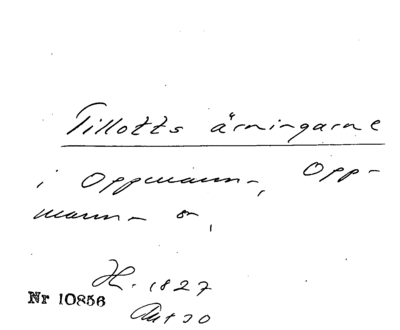 Tillotts ärningarne
i Oppmanna, Opp-
manna sn,
H. 1827
Nr 10856